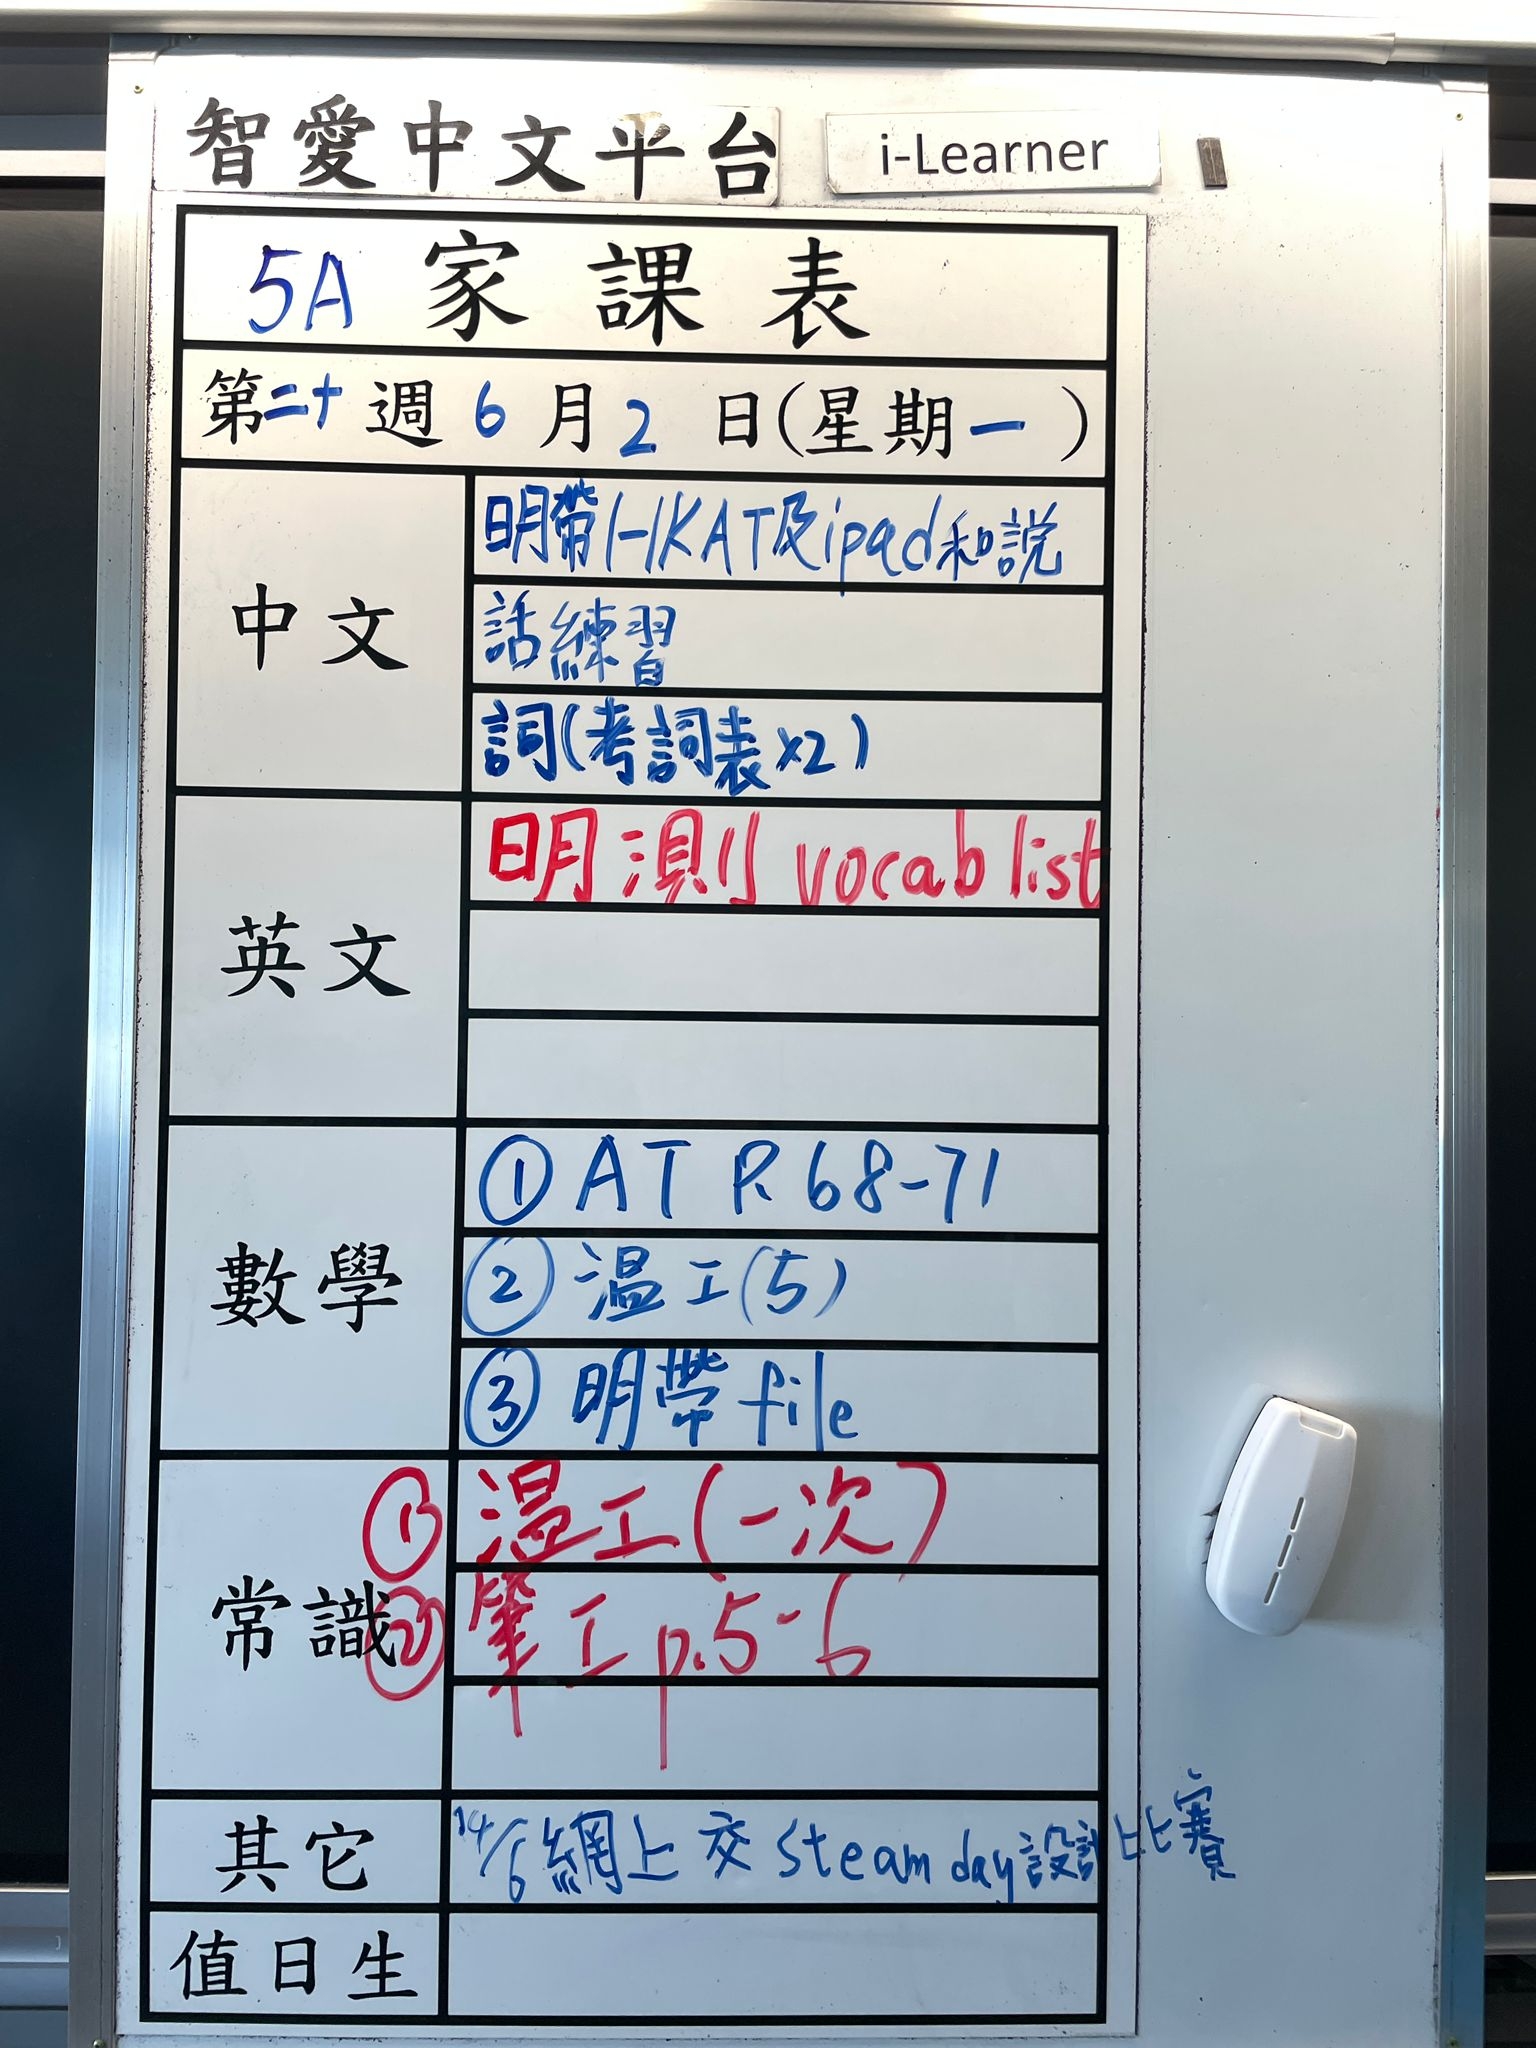 智愛中文平台 i-Learner
5A 家課表
第二十週 6月2日(星期一)
中文
明帶HKAT及ipad和説
話練習
詞(考詞表x2)
英文
明測 vocab list
數學
① AT P. 68-71
② 温工(5)
③ 明帶 file
常識
① 温工(一次)
② 筆工 p.5-6
其它
14/6 網上交 Steam day 設計比賽
值日生